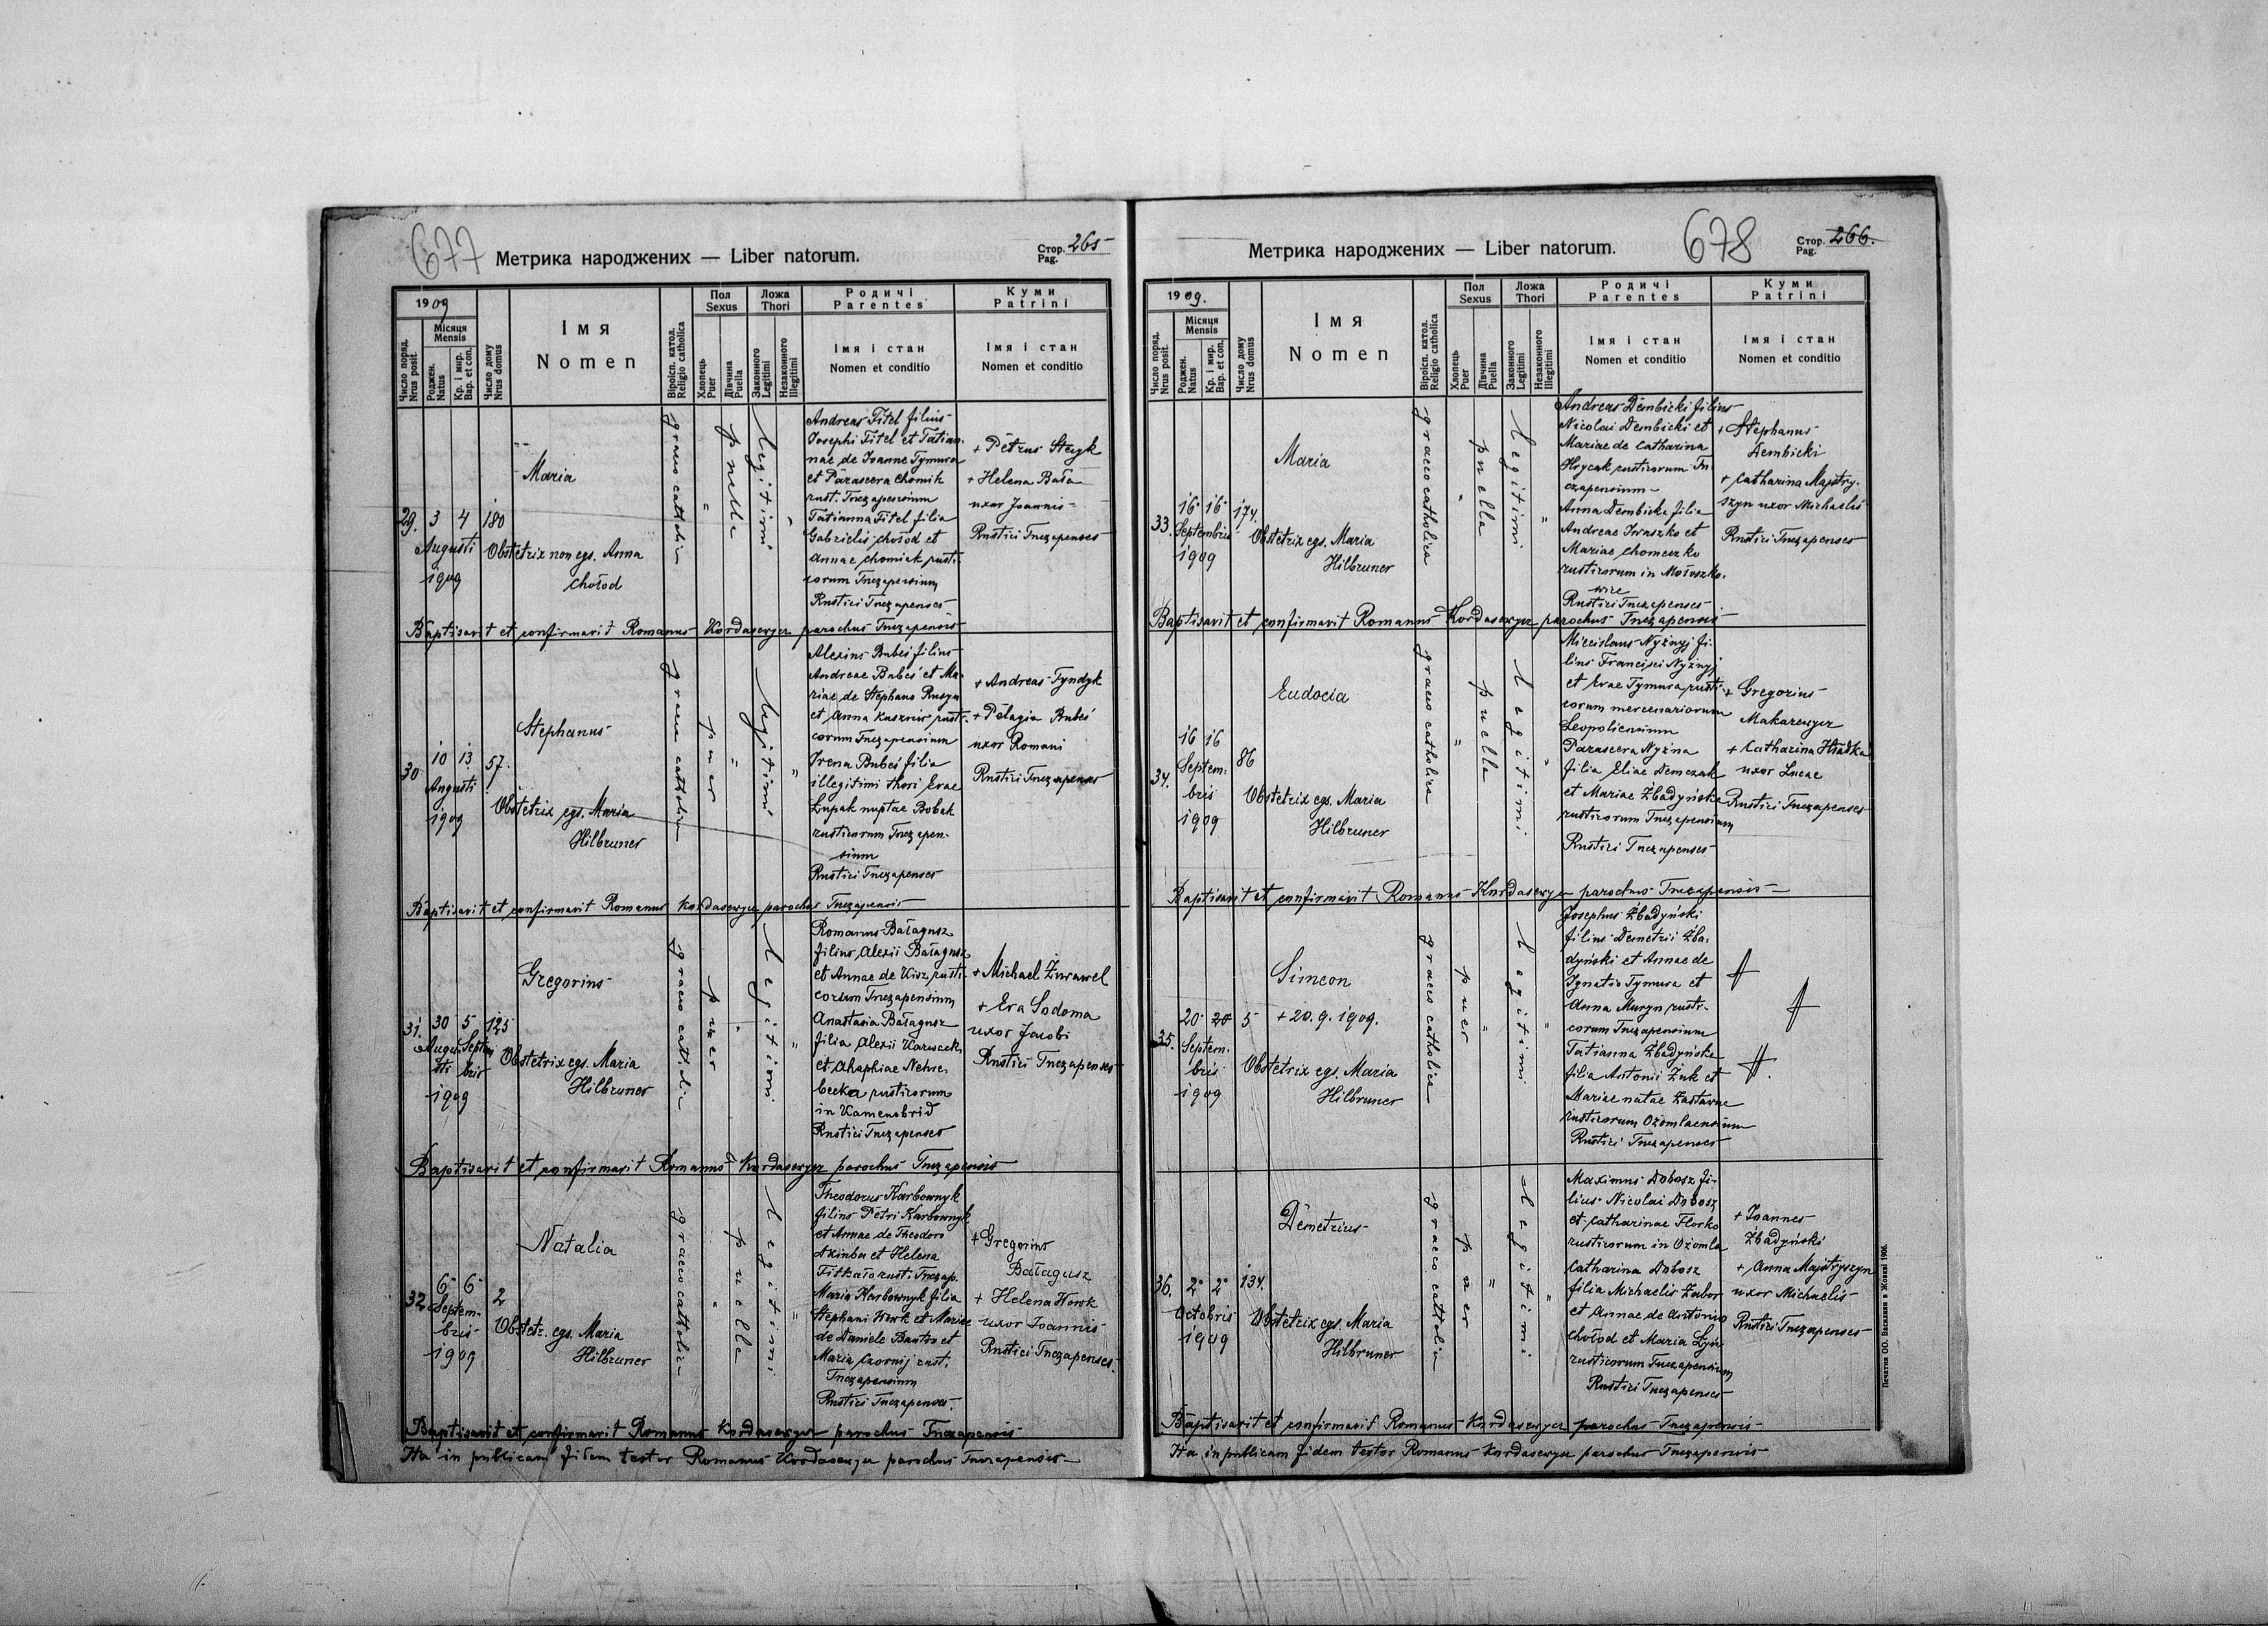 677
Метрика народжених — Liber natorum.
Стор. 265
Pag.
1909
Число поряд.
Nrus posit.
Місяця
Mensis
Роджен.
Natus
Кр. і мир.
Bap. et con.
Число дому
Nrus domus
Імя
Nomen
Віроісп. катол.
Religio catholica
Пол
Sexus
Хлопець
Puer
Дівчина
Puella
Ложа
Thori
Законного
Legitimi
Незаконного
Illegitimi
Родичі
Parentes
Імя і стан
Nomen et conditio
Куми
Patrini
Імя і стан
Nomen et conditio
29. 3 4 180
Augusti
1909
Maria
Obstetrix non egs. Anna
Chołod
graeco catholica
"
puella
legitimi
"
Andreas Fitel filius
Josephi Fitel et Tatian-
nae de Ioanne Tymura
et Parascera Chomik
rust. Tuczapensium
Tatianna Fitel filia
Gabrielis Chołod et
Annae Chomiak rusti-
corum Tuczapensium
Rustici Tuczapenses
+ Petrus Stcyk
+ Helena Bała
uxor Joannis
Rustici Tuczapenses
Baptisavit et confirmavit Romanus Kordasewycz parochus Tuczapensis
30 10 13 57.
Augusti
1909
Stephanus
Obstetrix egs. Maria
Hilbruner
graeco catholica
puer
"
legitimi
"
Alexius Bubeś filius
Andreae Bubeś et Ma-
riae de Stephano Rusyn
et Anna Kusznir rust-
corum Tuczapensium
Irena Bubeś filia
illegitimi thori Evae
Łupak nuptae Bobak
rusticorum Tuczapen-
sium
Rustici Tuczapenses
+ Andreas Tyndyk
+ Pelagia Bubeś
uxor Romani
Rustici Tuczapenses
Baptisavit et confirmavit Romanus Kordasewycz parochus Tuczapensis
31. 30 5 125
Augu- Septem
sti bris
1909
Gregorius
Obstetrix egs. Maria
Hilbruner
graeco catholic
puer
"
legitimi
"
Romanus Bałagusz
filius Alexii Bałagusz
et Annae de Kisz rusti-
corum Tuczapensium
Anastasia Bałagusz
filia Alexii
et Ahaphiae Nehre-
becka rusticorum
in Kamenobrid
Rustici Tuczapenses
+ Michael Żurawel
+ Eva Sodoma
uxor Jacobi
Rustici Tuczapenses
Baptisavit et confirmavit Romanus Kordasewycz parochus Tuczapensis
32 6 6 2
Septem-
bris
1909
Natalia
Obstetr. egs. Maria
Hilbruner
graeco catholica
"
puella
legitimi
"
Theodorus Karbownyk
filius Petri Karbownyk
et Annae de Theodoro
Dziuba et Helena
Fitkało rusti. Tuczap.
Maria Karbownyk filia
Stephani Howk et Mariae
de Daniele Bantro et
Maria Czornij rust.
Tuczapensium
Rustici Tuczapenses.
+ Gregorius
Bałagusz
+ Helena Howk
uxor Ioannis
Rustici Tuczapenses.
Baptisavit et confirmavit Romanus Kordasewycz parochus Tuczapensis
Ita in publicam fidem testor Romanus Kordasewycz parochus Tuczapensis
678
Метрика народжених — Liber natorum.
Стор. 266.
Pag.
1909.
Число поряд.
Nrus posit.
Місяця
Mensis
Роджен.
Natus
Кр. і мир.
Bap. et con.
Число дому
Nrus domus
Імя
Nomen
Віроісп. катол.
Religio catholica
Пол
Sexus
Хлопець
Puer
Дівчина
Puella
Ложа
Thori
Законного
Legitimi
Незаконного
Illegitimi
Родичі
Parentes
Імя і стан
Nomen et conditio
Куми
Patrini
Імя і стан
Nomen et conditio
33. 16 16 174.
Septembris
1909
Maria
Obstetrix egs. Maria
Hilbruner
graeco catholica
"
puella
legitimi
"
Andreas Dembicki filius
Nicolai Dembicki et
Mariae de Catharina
Hrycak rusticorum Tu-
czapensium
Anna Dembicka filia
Andreae Iwaszko et
Mariae Chomeczko
rusticorum in Mołoszko-
wice
Rustici Tuczapenses
+ Stephanus
Dembicki
+ Catharina Majstry-
szyn uxor Michaelis
Rustici Tuczapenses
Baptisavit et confirmavit Romanus Kordasewycz parochus Tuczapensis
34. 16 16 86
Septem-
bris
1909
Eudocia
Obstetrix egs. Maria
Hilbruner
graeco catholica
"
puella
legitimi
"
Miecislaus Nyżnyj fi-
lius Francisci Nyżnyj
et Evae Tymura rusti-
corum mercenariorum
Leopoliensium
Parascera Nyżna
filia Eliae Demczak
et Mariae Żbadyńska
rusticorum Tuczapensium
Rustici Tuczapenses
+ Gregorius
Makarewycz
+ Catharina Hładka
uxor Lucae
Rustici Tuczapenses
Baptisavit et confirmavit Romanus Kordasewycz parochus Tuczapensis
35. 20 20 5
Septem-
bris
1909
Simeon
+ 20. 9. 1909.
Obstetrix egs. Maria
Hilbruner
graeco catholica
puer
"
legitimi
"
Josephus Żbadyński
filius Demetrii Żba-
dyński et Annae de
Ignatio Tymura et
Anna Muryn rusti-
corum Tuczapensium
Tatianna Żbadyńska
filia Antonii Żuk et
Mariae natae Zastavne
rusticorum Ożomlaensium
Rustici Tuczapenses
36. 2 2 134.
Octobris
1909
Demetrius
Obstetrix egs. Maria
Hilbruner
graeco catholica
puer
"
legitimi
"
Maximus Dobosz fi-
lius Nicolai Dobosz
et Catharinae Florko
rusticorum in Ożomla
Catharina Dobosz
filia Michaelis Zubor
et Annae de Antonio
Chołod et Maria Łyń
rusticorum Tuczapensium
Rustici Tuczapenses
+ Ioannes
Żbadyński
+ Anna Majstryszyn
uxor Michaelis
Rustici Tuczapenses
Baptisavit et confirmavit Romanus Kordasewycz parochus Tuczapensis
Ita in publicam fidem testor Romanus Kordasewycz parochus Tuczapensis
Печатня ОО. Василиян в Жовкві 1906.